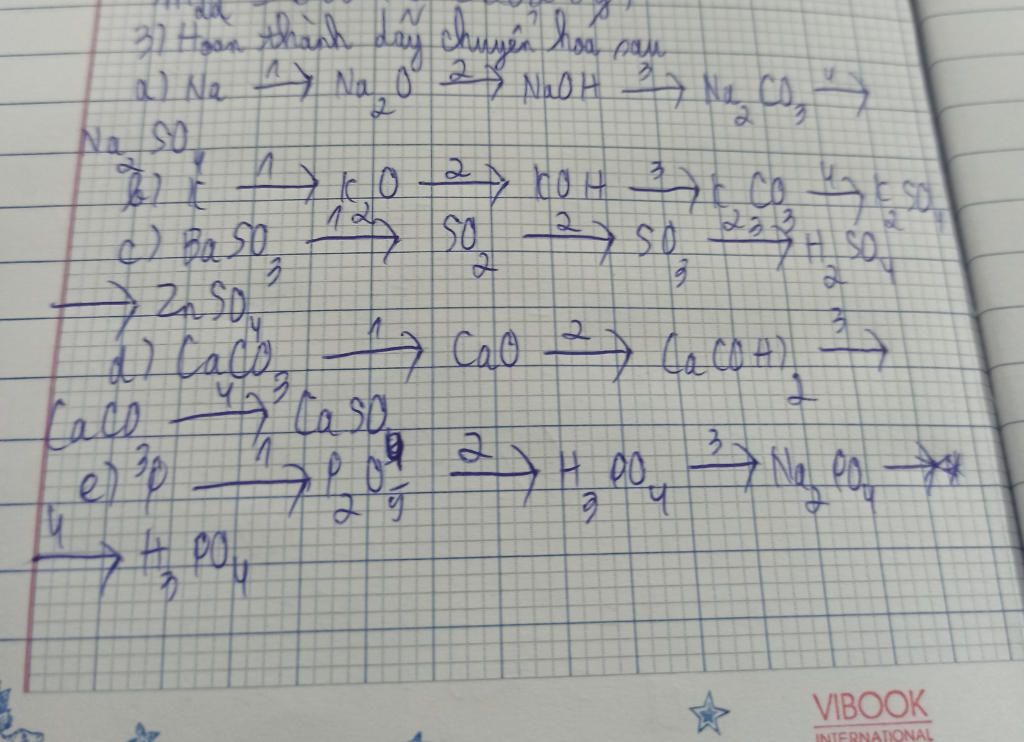 3) Hoàn thành dãy chuyển hoá sau
a) Na 1→ Na2O 2→ NaOH 3→ Na2CO3 4→
Na2SO4
b) K 1→ KO 2→ KOH 3→ KCO 4→ K2SO4
c) BaSO3 12→ SO2 2→ SO3 233→ H2SO4
→ ZnSO4
d) CaCO3 1→ CaO 2→ Ca(OH)2 3→
CaCO3 4→ CaSO4
e) P 1→ P2O5 2→ H3PO4 3→ Na2PO4 →
4→ H3PO4
VIBOOK
INTERNATIONAL